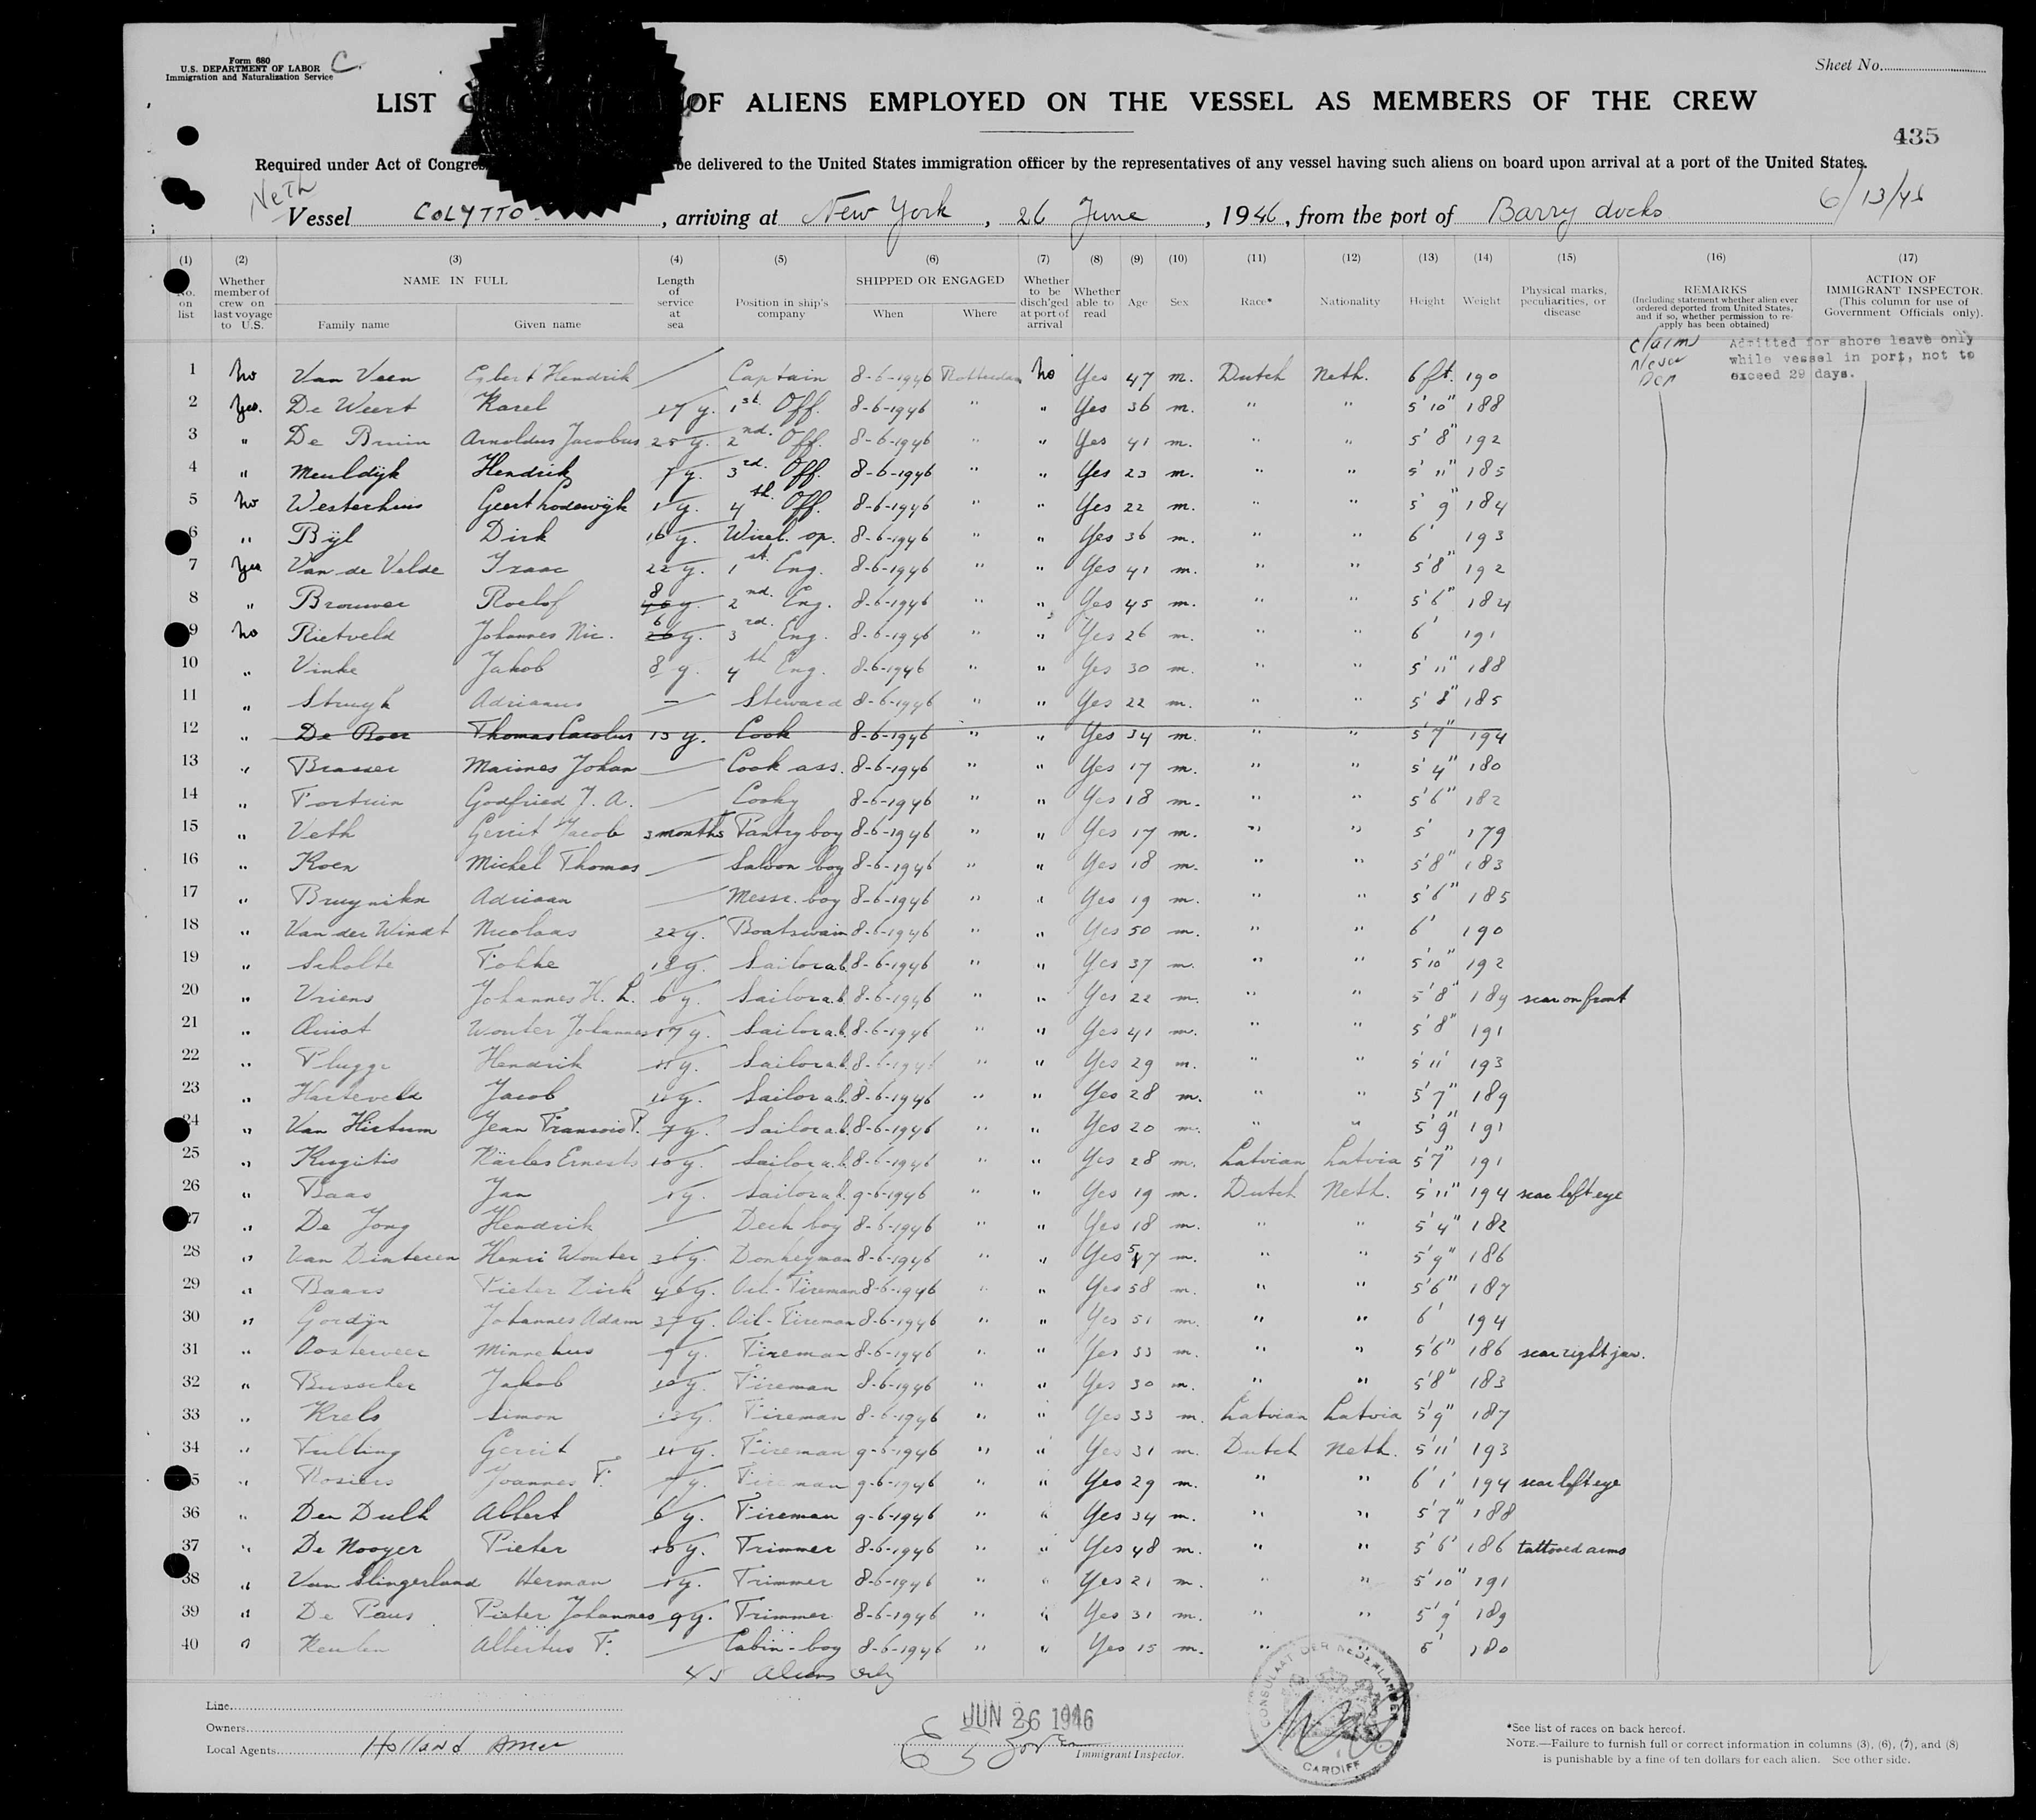 Form 680
U.S. DEPARTMENT OF LABOR
Immigration and Naturalization Service
C
Sheet No.
LIST OF ALIENS EMPLOYED ON THE VESSEL AS MEMBERS OF THE CREW
435
Required under Act of Congres be delivered to the United States immigration officer by the representatives of any vessel having such aliens on board upon arrival at a port of the United States.
Neth
Vessel COLYTTO, arriving at New York, 26 June, 1946, from the port of Barry docks 6/13/46
(1) (2) (3) (4) (5) (6) (7) (8) (9) (10) (11) (12) (13) (14) (15) (16) (17)
No. on list Whether member of crew on last voyage to U.S. NAME IN FULL Family name Given name Length of service at sea Position in ship's company SHIPPED OR ENGAGED When Where Whether to be disch'ged at port of arrival Whether able to read Age Sex Race* Nationality Height Weight Physical marks, peculiarities, or disease REMARKS (Including statement whether alien ever ordered deported from United States, and if so, whether permission to re-apply has been obtained) ACTION OF IMMIGRANT INSPECTOR. (This column for use of Government Officials only).
claim Never Dep
Admitted for shore leave only
while vessel in port, not to
exceed 29 days.
1 No Van Veen Egbert Hendrik Captain 8-6-1946 Rotterdam No Yes 47 m. Dutch Neth. 6 ft. 190
2 Yes. De Weert Karel 17 y. 1st. Off. 8-6-1946 " " Yes 36 m. " " 5'10" 188
3 " De Bruin Arnoldus Jacobus 25 y. 2nd. Off. 8-6-1946 " " Yes 41 m. " " 5'8" 192
4 " Meuldijk Hendrik 7 y. 3rd. Off. 8-6-1946 " " Yes 23 m. " " 5'11" 185
5 No Westerhuis Geert Lodewijk 1 y. 4th. Off. 8-6-1946 " " Yes 22 m. " " 5'9" 184
6 " Bijl Dirk 16 y. Wirel. op. 8-6-1946 " " Yes 36 m. " " 6' 193
7 Yes Van de Velde Izaac 22 y. 1st. Eng. 8-6-1946 " " Yes 41 m. " " 5'8" 192
8 " Brouwer Roelof 8 y. 2nd. Eng. 8-6-1946 " " Yes 45 m. " " 5'6" 184
9 No Rietveld Johannes Nic. 6 y. 3rd. Eng. 8-6-1946 " " Yes 26 m. " " 6' 191
10 " Vinke Jakob 8 y. 4th Eng. 8-6-1946 " " Yes 30 m. " " 5'11" 188
11 " Struyk Adrianus — Steward 8-6-1946 " " Yes 22 m. " " 5'8" 185
12 " De Boer Thomas Carolus 13 y. Cook 8-6-1946 " " Yes 34 m. " " 5'7" 194
13 " Brasser Marines Johan Cook ass. 8-6-1946 " " Yes 17 m. " " 5'4" 180
14 " Fortuin Godfried J. A. Cooky 8-6-1946 " " Yes 18 m. " " 5'6" 182
15 " Veth Gerrit Jacob 3 months Pantry boy 8-6-1946 " " Yes 17 m. " " 5' 179
16 " Koen Michel Thomas Saloon boy 8-6-1946 " " Yes 18 m. " " 5'8" 183
17 " Adriaan Messr. boy 8-6-1946 " " Yes 19 m. " " 5'6" 185
18 " Van der Windt Nicolaas 22 y. Boatswain 8-6-1946 " " Yes 50 m. " " 6' 190
19 " Scholte Fokke 18 y. Sailor a.b. 8-6-1946 " " Yes 37 m. " " 5'10" 192
20 " Vriens Johannes H. L. 6 y. Sailor a.b. 8-6-1946 " " Yes 22 m. " " 5'8" 189 scar on front
21 " Quist Wouter Johannes 17 y. Sailor a.b. 8-6-1946 " " Yes 41 m. " " 5'8" 191
22 " Plugge Hendrik 11 y. Sailor a.b. 8-6-1946 " " Yes 29 m. " " 5'11' 193
23 " Harteveld Jacob 11 y. Sailor a.b. 8-6-1946 " " Yes 28 m. " " 5'7" 189
24 " Van Hirtum Jean Francois P. 7 y. Sailor a.b. 8-6-1946 " " Yes 20 m. " " 5'9" 191
25 " Krugitis Kārlis Ernests 10 y. Sailor a.b. 8-6-1946 " " Yes 28 m. Latvian Latvia 5'7" 191
26 " Baas Jan 1 y. Sailor a.b. 9-6-1946 " " Yes 19 m. Dutch Neth. 5'11" 194 scar left eye
27 " De Jong Hendrik — Deck boy 8-6-1946 " " Yes 18 m. " " 5'4" 182
28 " Van Dinteren Henri Wouter 36 y. Donkeyman 8-6-1946 " " Yes 57 m. " " 5'9" 186
29 " Baars Pieter Dirk 46 y. Oil-Fireman 8-6-1946 " " Yes 58 m. " " 5'6" 187
30 " Gordijn Johannes Adam 37 y. Oil-Fireman 8-6-1946 " " Yes 51 m. " " 6' 194
31 " Oosterveer Minnehus 9 y. Fireman 8-6-1946 " " Yes 33 m. " " 5'6" 186 scar right jaw.
32 " Busscher Jakob 10 y. Fireman 8-6-1946 " " Yes 30 m. " " 5'8" 183
33 " Krels Simon 13 y. Fireman 8-6-1946 " " Yes 33 m. Latvian Latvia 5'9" 187
34 " Tulling Gerrit 11 y. Fireman 9-6-1946 " " Yes 31 m. Dutch Neth. 5'11' 193
35 " Rosiers Joannes F. 7 y. Fireman 9-6-1946 " " Yes 29 m. " " 6'1' 194 scar left eye
36 " Den Dulk Albert 6 y. Fireman 9-6-1946 " " Yes 34 m. " " 5'7" 188
37 " De Nooyer Pieter 10 y. Trimmer 8-6-1946 " " Yes 48 m. " " 5'6' 186 tattooed arms
38 " Van Slingerland Herman 1 y. Trimmer 8-6-1946 " " Yes 21 m. " " 5'10" 191
39 " De Paus Pieter Johannes 9 y. Trimmer 8-6-1946 " " Yes 31 m. " " 5'9' 189
40 " Keulen Albertus F. Cabin-boy 8-6-1946 " " Yes 15 m. " " 5' 180
45 Aliens Only
Line
Owners
Local Agents Holland Amer
JUN 26 1946
Immigrant Inspector.
CONSULAAT DER NEDERLANDEN
CARDIFF
*See list of races on back hereof.
NOTE.—Failure to furnish full or correct information in columns (3), (6), (7), and (8)
is punishable by a fine of ten dollars for each alien. See other side.